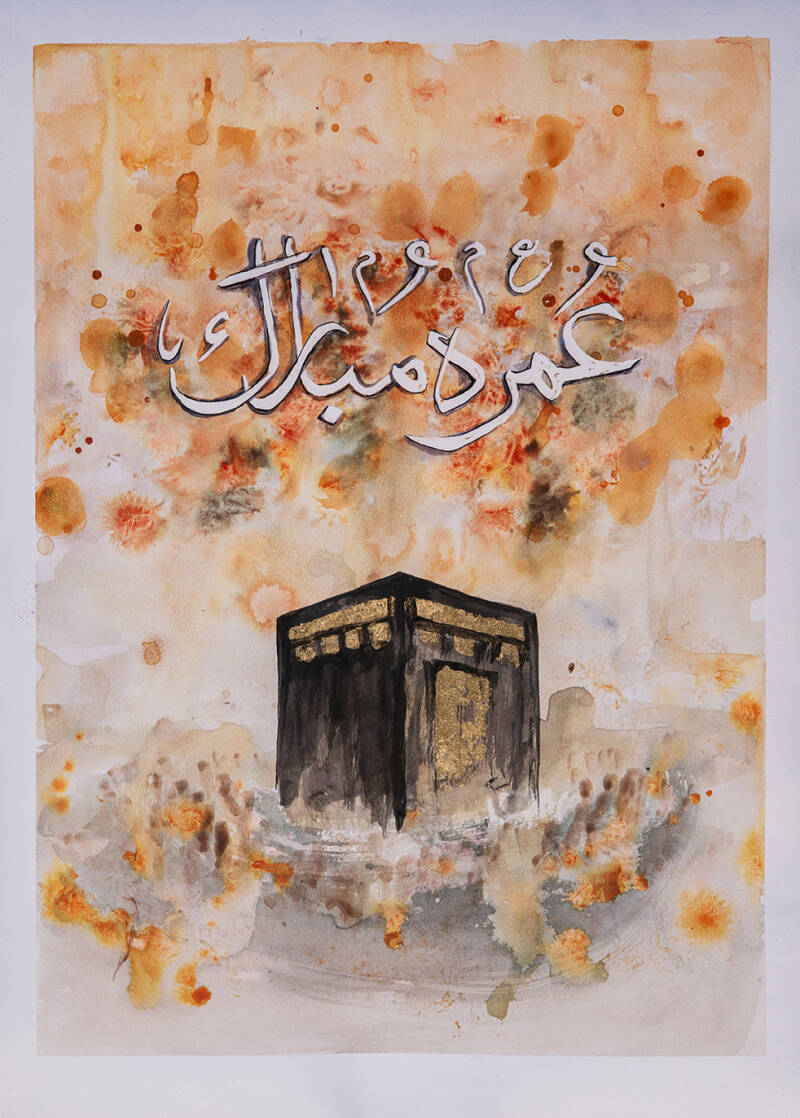 عُمره مبارك